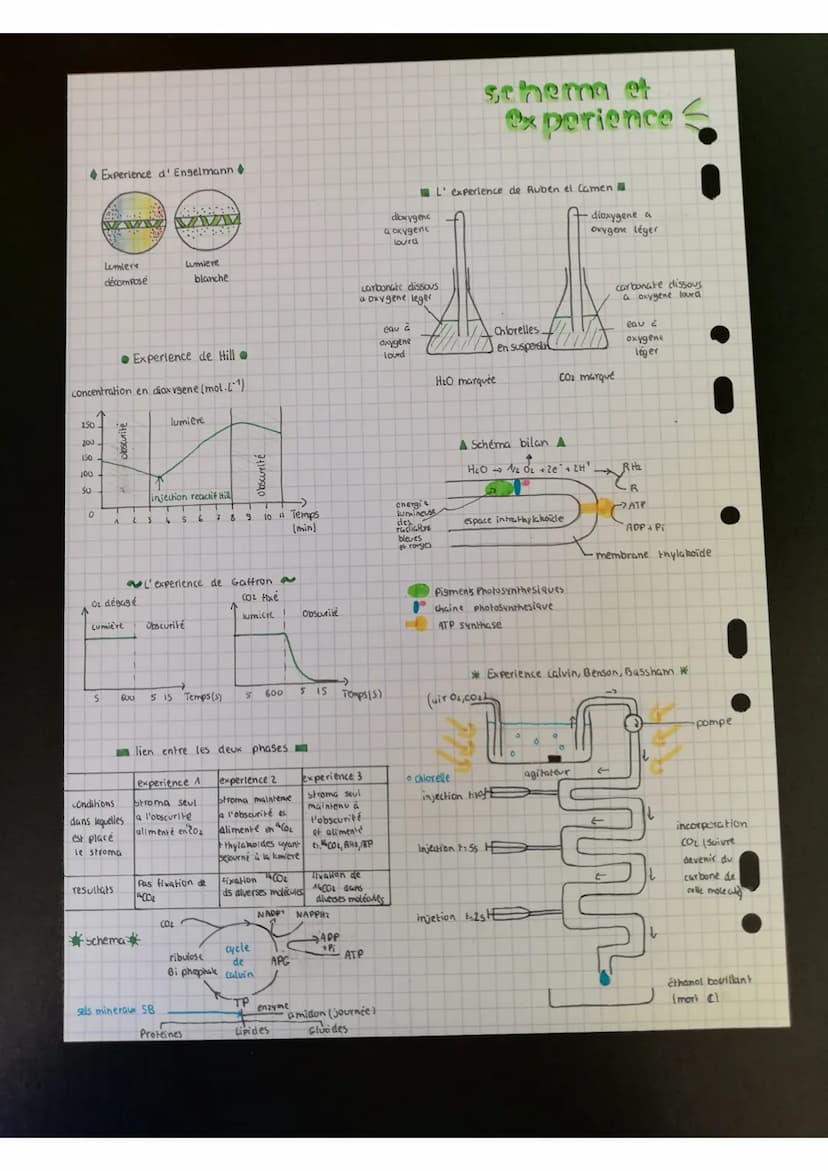 schema et
experience
Experience d'Engelmann
lumiere
décomposé
lumiere
blanche
L'experience de Ruben et Camen
dioxygene
a oxygene
lourd
dioxygene a
oxygene léger
carbonate dissous
a oxygene leger
carbonate dissous
a oxygene lourd
eau à
oxygene
lourd
Chlorelles
en suspension
eau à
oxygene
léger
H2O marquée
CO2 marqué
Experience de Hill
concentration en dioxygene (mol.L-1)
250
200
150
100
50
0
obscurité
lumiere
obscurité
injection reactif Hill
1 2 3 4 5 6 7 8 9 10 11 Temps
(min)
Schéma bilan
H2O → 1/2 O2 + 2e- + 2H+
RH2
R
ATP
ADP + Pi
energie
lumineuse
des
radiations
bleues
et rouges
espace intrathylakoïde
membrane thylakoïde
Pigments Photosynthesiques
chaine photosynthesique
ATP synthase
L'experience de Gaffron
O2 dégagé
lumière
obscurité
5 600 5 15 Temps(s)
CO2 fixé
lumière
obscurité
5 600 5 15 Temps(s)
Experience Calvin, Benson, Bassham
(air O2, CO2)
pompe
chlorelle
agitateur
injection t=10s
injection t=5s
injetion t=2s
incorporation
CO2 (suivre
devenir du
carbone de
cette molecule)
éthanol bouillant
(mort C)
lien entre les deux phases
experience 1
experience 2
experience 3
conditions
dans lequelles
est placé
le stroma
stroma seul
a l'obscurité
alimenté en
stroma maintenu
a l'obscurité et
alimenté en 14CO2
+ thylakoides ayant
sejourné à la lumiere
stroma seul
maintenu à
l'obscurité
et alimenté
en 14CO2, RH2, ATP
resultats
Pas fixation de
14CO2
fixation 14CO2
ds diverses molécules
fixation de
14CO2 dans
diverses molécules
schema
CO2
NADP+
NADPH2
ribulose
Bi phosphate
cycle
de
calvin
APG
ADP
+Pi
ATP
TP
enzyme
sels mineraux SB
amidon (journée)
Protéines
Lipides
Glucides